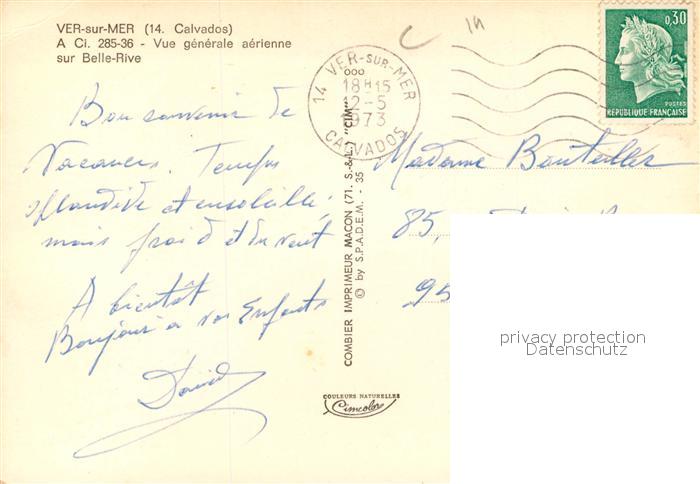 VER-sur-MER (14. Calvados)
A Ci. 285-36 - Vue générale aérienne
sur Belle-Rive
14 VER-SUR-MER
ooo
18H15
12-5
1973
CALVADOS
0,30
POSTES
REPUBLIQUE FRANÇAISE
Bon souvenir de
Vacances. Temps
splendide et ensoleillé,
mais froid et du vent
A bientôt
Bonjour à vos Enfants
David
COMBIER IMPRIMEUR MACON (71. S.-&-L.) "CIM"
© by S.P.A.D.E.M. - 35
COULEURS NATURELLES
Cimcolor
Madame Bouteiller
85,
95
privacy protection
Datenschutz